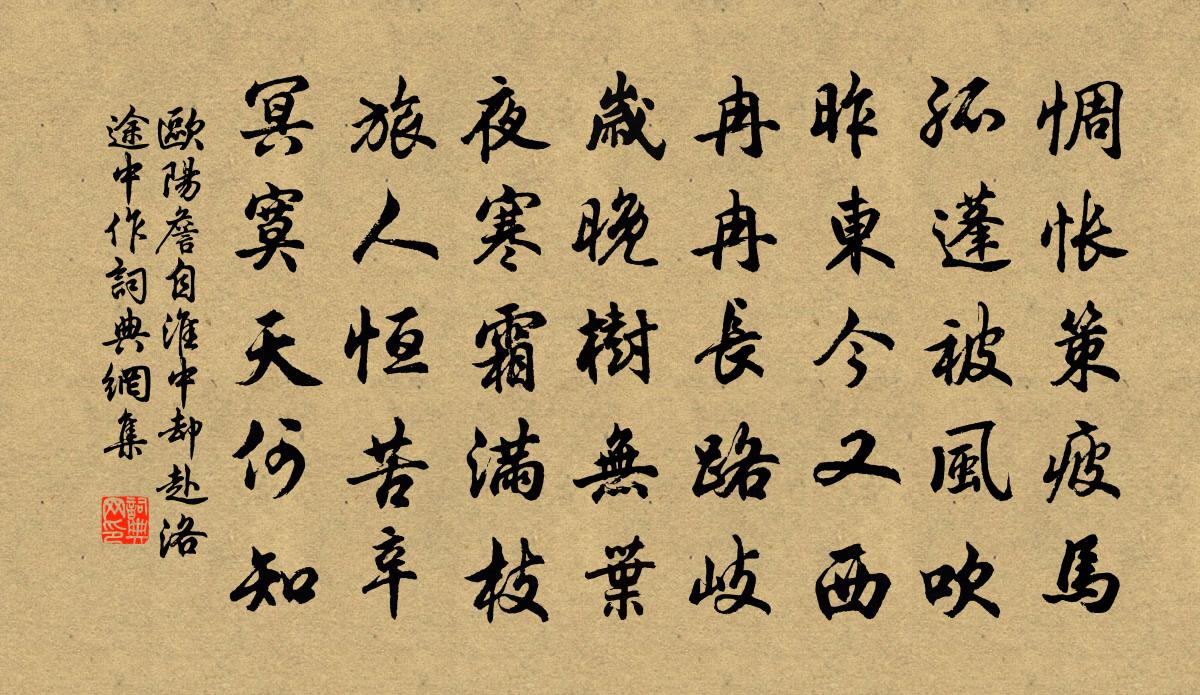 惆怅策疲馬
孤蓬被風吹
昨東今又西
冉冉長路岐
歲晚樹無葉
夜寒霜滿枝
旅人恒苦辛
冥寞天何知
歐陽詹自淮中却赴洛
途中作詞典網集
詞典网印